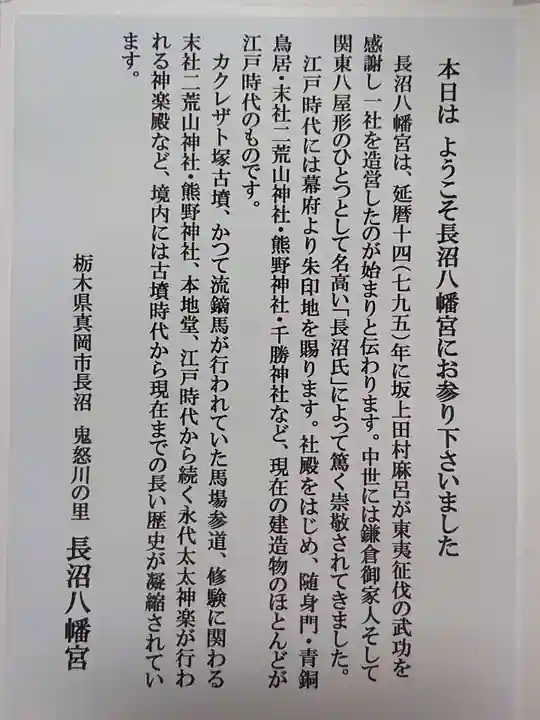 本日は ようこそ長沼八幡宮にお参り下さいました
長沼八幡宮は、延暦十四(七九五)年に坂上田村麻呂が東夷征伐の武功を
感謝し一社を造営したのが始まりと伝わります。中世には鎌倉御家人そして
関東八屋形のひとつとして名高い「長沼氏」によって篤く崇敬されてきました。
江戸時代には幕府より朱印地を賜ります。社殿をはじめ、随身門・青銅
鳥居・末社二荒山神社・熊野神社・千勝神社など、現在の建造物のほとんどが
江戸時代のものです。
カクレザト塚古墳、かつて流鏑馬が行われていた馬場参道、修験に関わる
末社二荒山神社・熊野神社、本地堂、江戸時代から続く永代太太神楽が行わ
れる神楽殿など、境内には古墳時代から現在までの長い歴史が凝縮されてい
ます。
栃木県真岡市長沼 鬼怒川の里 長沼八幡宮